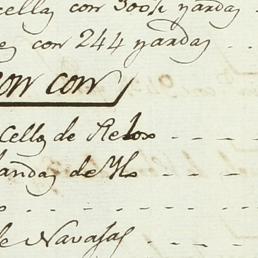 cellas con 300½ yardas
es con 244 yardas
on con
cella de Relox
andas de Yl
de Navajas